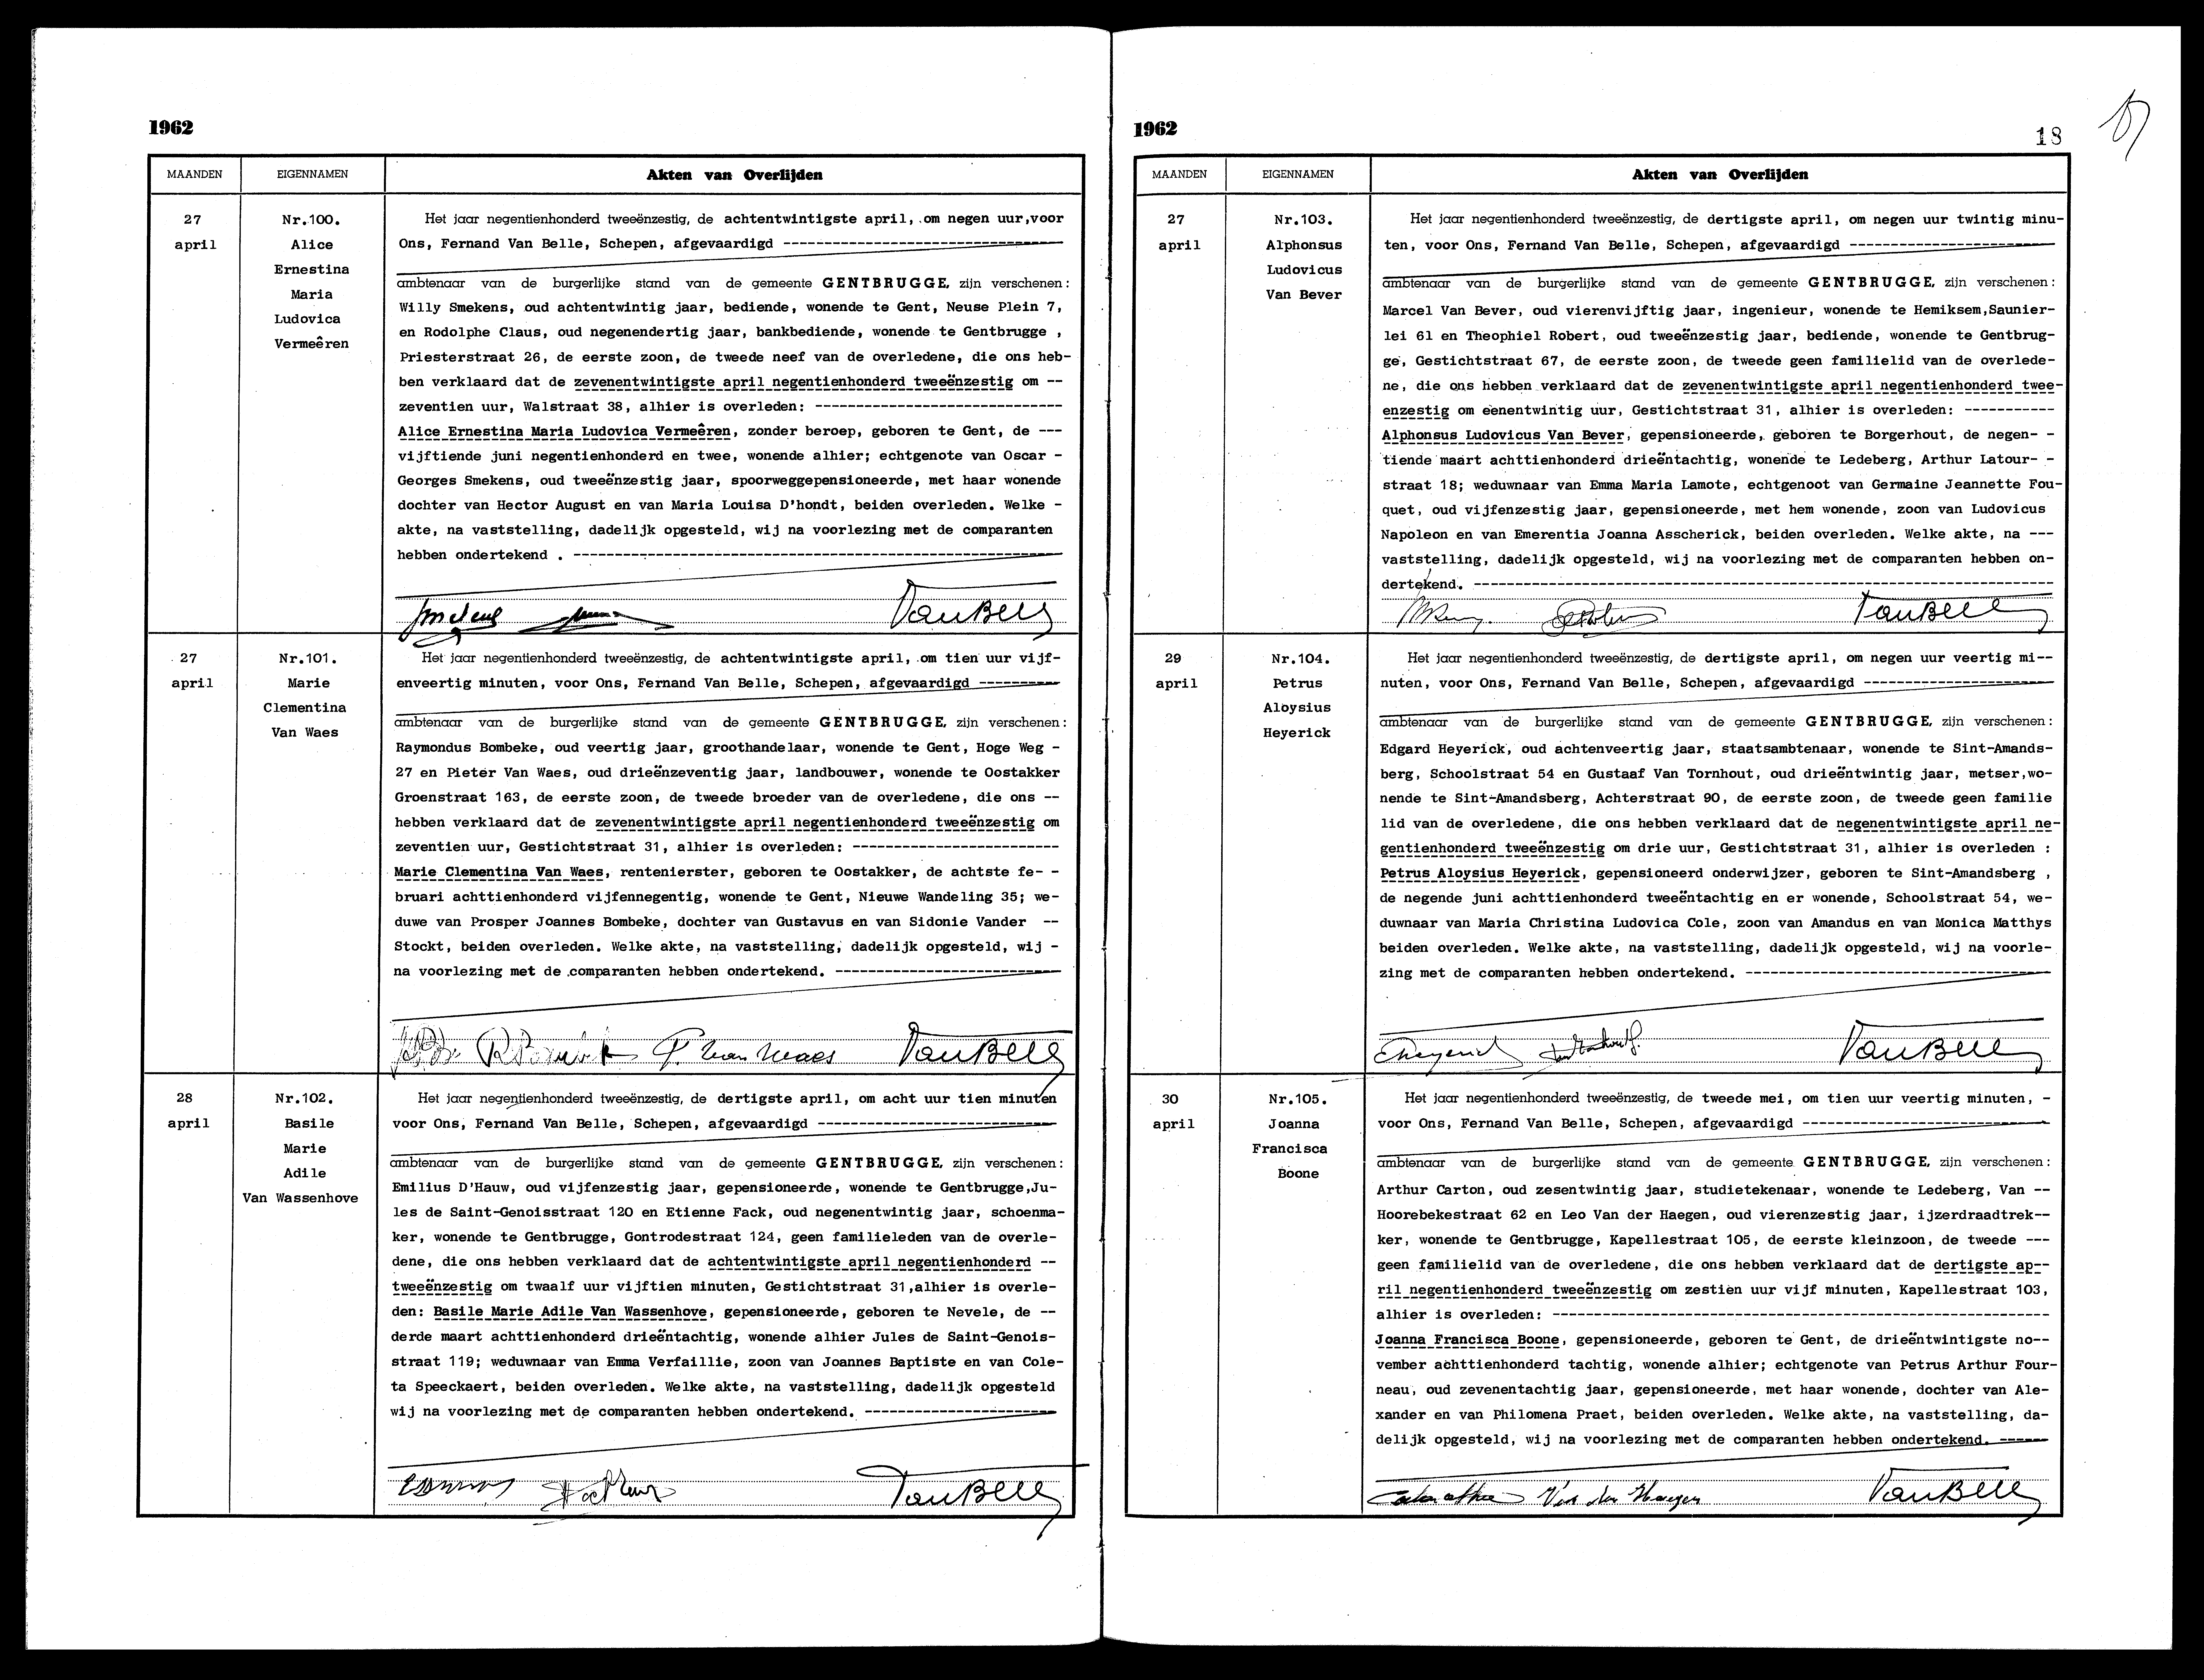 1962
MAANDEN
EIGENNAMEN
Akten van Overlijden
27
april
Nr.100.
Alice
Ernestina
Maria
Ludovica
Vermeêren
Het jaar negentienhonderd tweeënzestig, de achtentwintigste april, om negen uur,voor
Ons, Fernand Van Belle, Schepen, afgevaardigd ----------------------------------
ambtenaar van de burgerlijke stand van de gemeente GENTBRUGGE, zijn verschenen:
Willy Smekens, oud achtentwintig jaar, bediende, wonende te Gent, Neuse Plein 7,
en Rodolphe Claus, oud negenendertig jaar, bankbediende, wonende te Gentbrugge ,
Priesterstraat 26, de eerste zoon, de tweede neef van de overledene, die ons heb-
ben verklaard dat de zevenentwintigste april negentienhonderd tweeënzestig om --
zeventien uur, Walstraat 38, alhier is overleden: ------------------------------
Alice Ernestina Maria Ludovica Vermeêren, zonder beroep, geboren te Gent, de ---
vijftiende juni negentienhonderd en twee, wonende alhier; echtgenote van Oscar -
Georges Smekens, oud tweeënzestig jaar, spoorweggepensioneerde, met haar wonende
dochter van Hector August en van Maria Louisa D'hondt, beiden overleden. Welke -
akte, na vaststelling, dadelijk opgesteld, wij na voorlezing met de comparanten
hebben ondertekend . -----------------------------------------------------------
VanBelle
27
april
Nr.101.
Marie
Clementina
Van Waes
Het jaar negentienhonderd tweeënzestig, de achtentwintigste april, om tien uur vijf-
enveertig minuten, voor Ons, Fernand Van Belle, Schepen, afgevaardigd ----------
ambtenaar van de burgerlijke stand van de gemeente GENTBRUGGE, zijn verschenen:
Raymondus Bombeke, oud veertig jaar, groothandelaar, wonende te Gent, Hoge Weg -
27 en Pieter Van Waes, oud drieënzeventig jaar, landbouwer, wonende te Oostakker
Groenstraat 163, de eerste zoon, de tweede broeder van de overledene, die ons --
hebben verklaard dat de zevenentwintigste april negentienhonderd tweeënzestig om
zeventien uur, Gestichtstraat 31, alhier is overleden: -------------------------
Marie Clementina Van Waes, rentenierster, geboren te Oostakker, de achtste fe- -
bruari achttienhonderd vijfennegentig, wonende te Gent, Nieuwe Wandeling 35; we-
duwe van Prosper Joannes Bombeke, dochter van Gustavus en van Sidonie Vander --
Stockt, beiden overleden. Welke akte, na vaststelling, dadelijk opgesteld, wij -
na voorlezing met de comparanten hebben ondertekend. ---------------------------
P. Van Waes VanBelle
28
april
Nr.102.
Basile
Marie
Adile
Van Wassenhove
Het jaar negentienhonderd tweeënzestig, de dertigste april, om acht uur tien minuten
voor Ons, Fernand Van Belle, Schepen, afgevaardigd -----------------------------
ambtenaar van de burgerlijke stand van de gemeente GENTBRUGGE, zijn verschenen:
Emilius D'Hauw, oud vijfenzestig jaar, gepensioneerde, wonende te Gentbrugge,Ju-
les de Saint-Genoisstraat 120 en Etienne Fack, oud negenentwintig jaar, schoenma-
ker, wonende te Gentbrugge, Gontrodestraat 124, geen familieleden van de overle-
dene, die ons hebben verklaard dat de achtentwintigste april negentienhonderd --
tweeënzestig om twaalf uur vijftien minuten, Gestichtstraat 31,alhier is overle-
den: Basile Marie Adile Van Wassenhove, gepensioneerde, geboren te Nevele, de --
derde maart achttienhonderd drieëntachtig, wonende alhier Jules de Saint-Genois-
straat 119; weduwnaar van Emma Verfaillie, zoon van Joannes Baptiste en van Cole-
ta Speeckaert, beiden overleden. Welke akte, na vaststelling, dadelijk opgesteld
wij na voorlezing met de comparanten hebben ondertekend. -----------------------
VanBelle
1962
18
MAANDEN
EIGENNAMEN
Akten van Overlijden
27
april
Nr.103.
Alphonsus
Ludovicus
Van Bever
Het jaar negentienhonderd tweeënzestig, de dertigste april, om negen uur twintig minu-
ten, voor Ons, Fernand Van Belle, Schepen, afgevaardigd -------------------------
ambtenaar van de burgerlijke stand van de gemeente GENTBRUGGE, zijn verschenen:
Marcel Van Bever, oud vierenvijftig jaar, ingenieur, wonende te Hemiksem,Saunier-
lei 61 en Theophiel Robert, oud tweeënzestig jaar, bediende, wonende te Gentbrug-
ge, Gestichtstraat 67, de eerste zoon, de tweede geen familielid van de overlede-
ne, die ons hebben verklaard dat de zevenentwintigste april negentienhonderd twee-
enzestig om eenentwintig uur, Gestichtstraat 31, alhier is overleden: -----------
Alphonsus Ludovicus Van Bever, gepensioneerde, geboren te Borgerhout, de negen- -
tiende maart achttienhonderd drieëntachtig, wonende te Ledeberg, Arthur Latour- -
straat 18; weduwnaar van Emma Maria Lamote, echtgenoot van Germaine Jeannette Fou-
quet, oud vijfenzestig jaar, gepensioneerde, met hem wonende, zoon van Ludovicus
Napoleon en van Emerentia Joanna Asscherick, beiden overleden. Welke akte, na ---
vaststelling, dadelijk opgesteld, wij na voorlezing met de comparanten hebben on-
dertekend. ----------------------------------------------------------------------
VanBelle
29
april
Nr.104.
Petrus
Aloysius
Heyerick
Het jaar negentienhonderd tweeënzestig, de dertigste april, om negen uur veertig mi--
nuten, voor Ons, Fernand Van Belle, Schepen, afgevaardigd -----------------------
ambtenaar van de burgerlijke stand van de gemeente GENTBRUGGE, zijn verschenen:
Edgard Heyerick, oud achtenveertig jaar, staatsambtenaar, wonende te Sint-Amands-
berg, Schoolstraat 54 en Gustaaf Van Tornhout, oud drieëntwintig jaar, metser,wo-
nende te Sint-Amandsberg, Achterstraat 90, de eerste zoon, de tweede geen familie
lid van de overledene, die ons hebben verklaard dat de negenentwintigste april ne-
gentienhonderd tweeënzestig om drie uur, Gestichtstraat 31, alhier is overleden :
Petrus Aloysius Heyerick, gepensioneerd onderwijzer, geboren te Sint-Amandsberg ,
de negende juni achttienhonderd tweeëntachtig en er wonende, Schoolstraat 54, we-
duwnaar van Maria Christina Ludovica Cole, zoon van Amandus en van Monica Matthys
beiden overleden. Welke akte, na vaststelling, dadelijk opgesteld, wij na voorle-
zing met de comparanten hebben ondertekend. -------------------------------------
EHeyerick VanBelle
30
april
Nr.105.
Joanna
Francisca
Boone
Het jaar negentienhonderd tweeënzestig, de tweede mei, om tien uur veertig minuten, -
voor Ons, Fernand Van Belle, Schepen, afgevaardigd ------------------------------
ambtenaar van de burgerlijke stand van de gemeente GENTBRUGGE, zijn verschenen:
Arthur Carton, oud zesentwintig jaar, studietekenaar, wonende te Ledeberg, Van --
Hoorebekestraat 62 en Leo Van der Haegen, oud vierenzestig jaar, ijzerdraadtrek--
ker, wonende te Gentbrugge, Kapellestraat 105, de eerste kleinzoon, de tweede ---
geen familielid van de overledene, die ons hebben verklaard dat de dertigste ap--
ril negentienhonderd tweeënzestig om zestien uur vijf minuten, Kapellestraat 103,
alhier is overleden: ------------------------------------------------------------
Joanna Francisca Boone, gepensioneerde, geboren te Gent, de drieëntwintigste no--
vember achttienhonderd tachtig, wonende alhier; echtgenote van Petrus Arthur Four-
neau, oud zevenentachtig jaar, gepensioneerde, met haar wonende, dochter van Ale-
xander en van Philomena Praet, beiden overleden. Welke akte, na vaststelling, da-
delijk opgesteld, wij na voorlezing met de comparanten hebben ondertekend. ------
Van der Haegen VanBelle